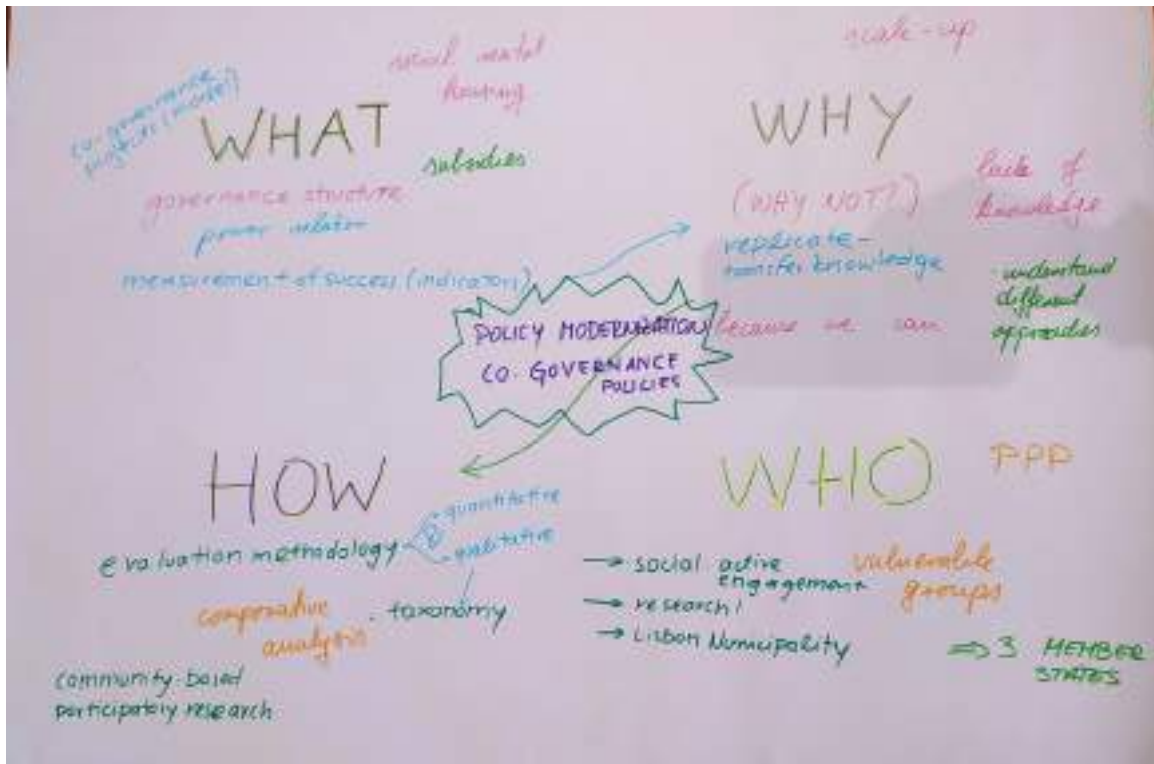 WHAT
co-governance
social rental
housing
subsidies
governance structure
power relation
measurement of success (indicators)
scale-up
WHY
(WHY NOT?)
lack of
knowledge
replicate -
transfer knowledge
- understand
different
because we can
POLICY MODERNIZATION
CO-GOVERNANCE
POLICIES
HOW
evaluation methodology
- quantitative
&
- qualitative
comparative
analysis
. taxonómy
community-based
participatory research
WHO
PPP
→ social active
engagement
vulnerable
groups
→ research
→ Lisbon Municipality
⇒ 3 MEMBER
STATES